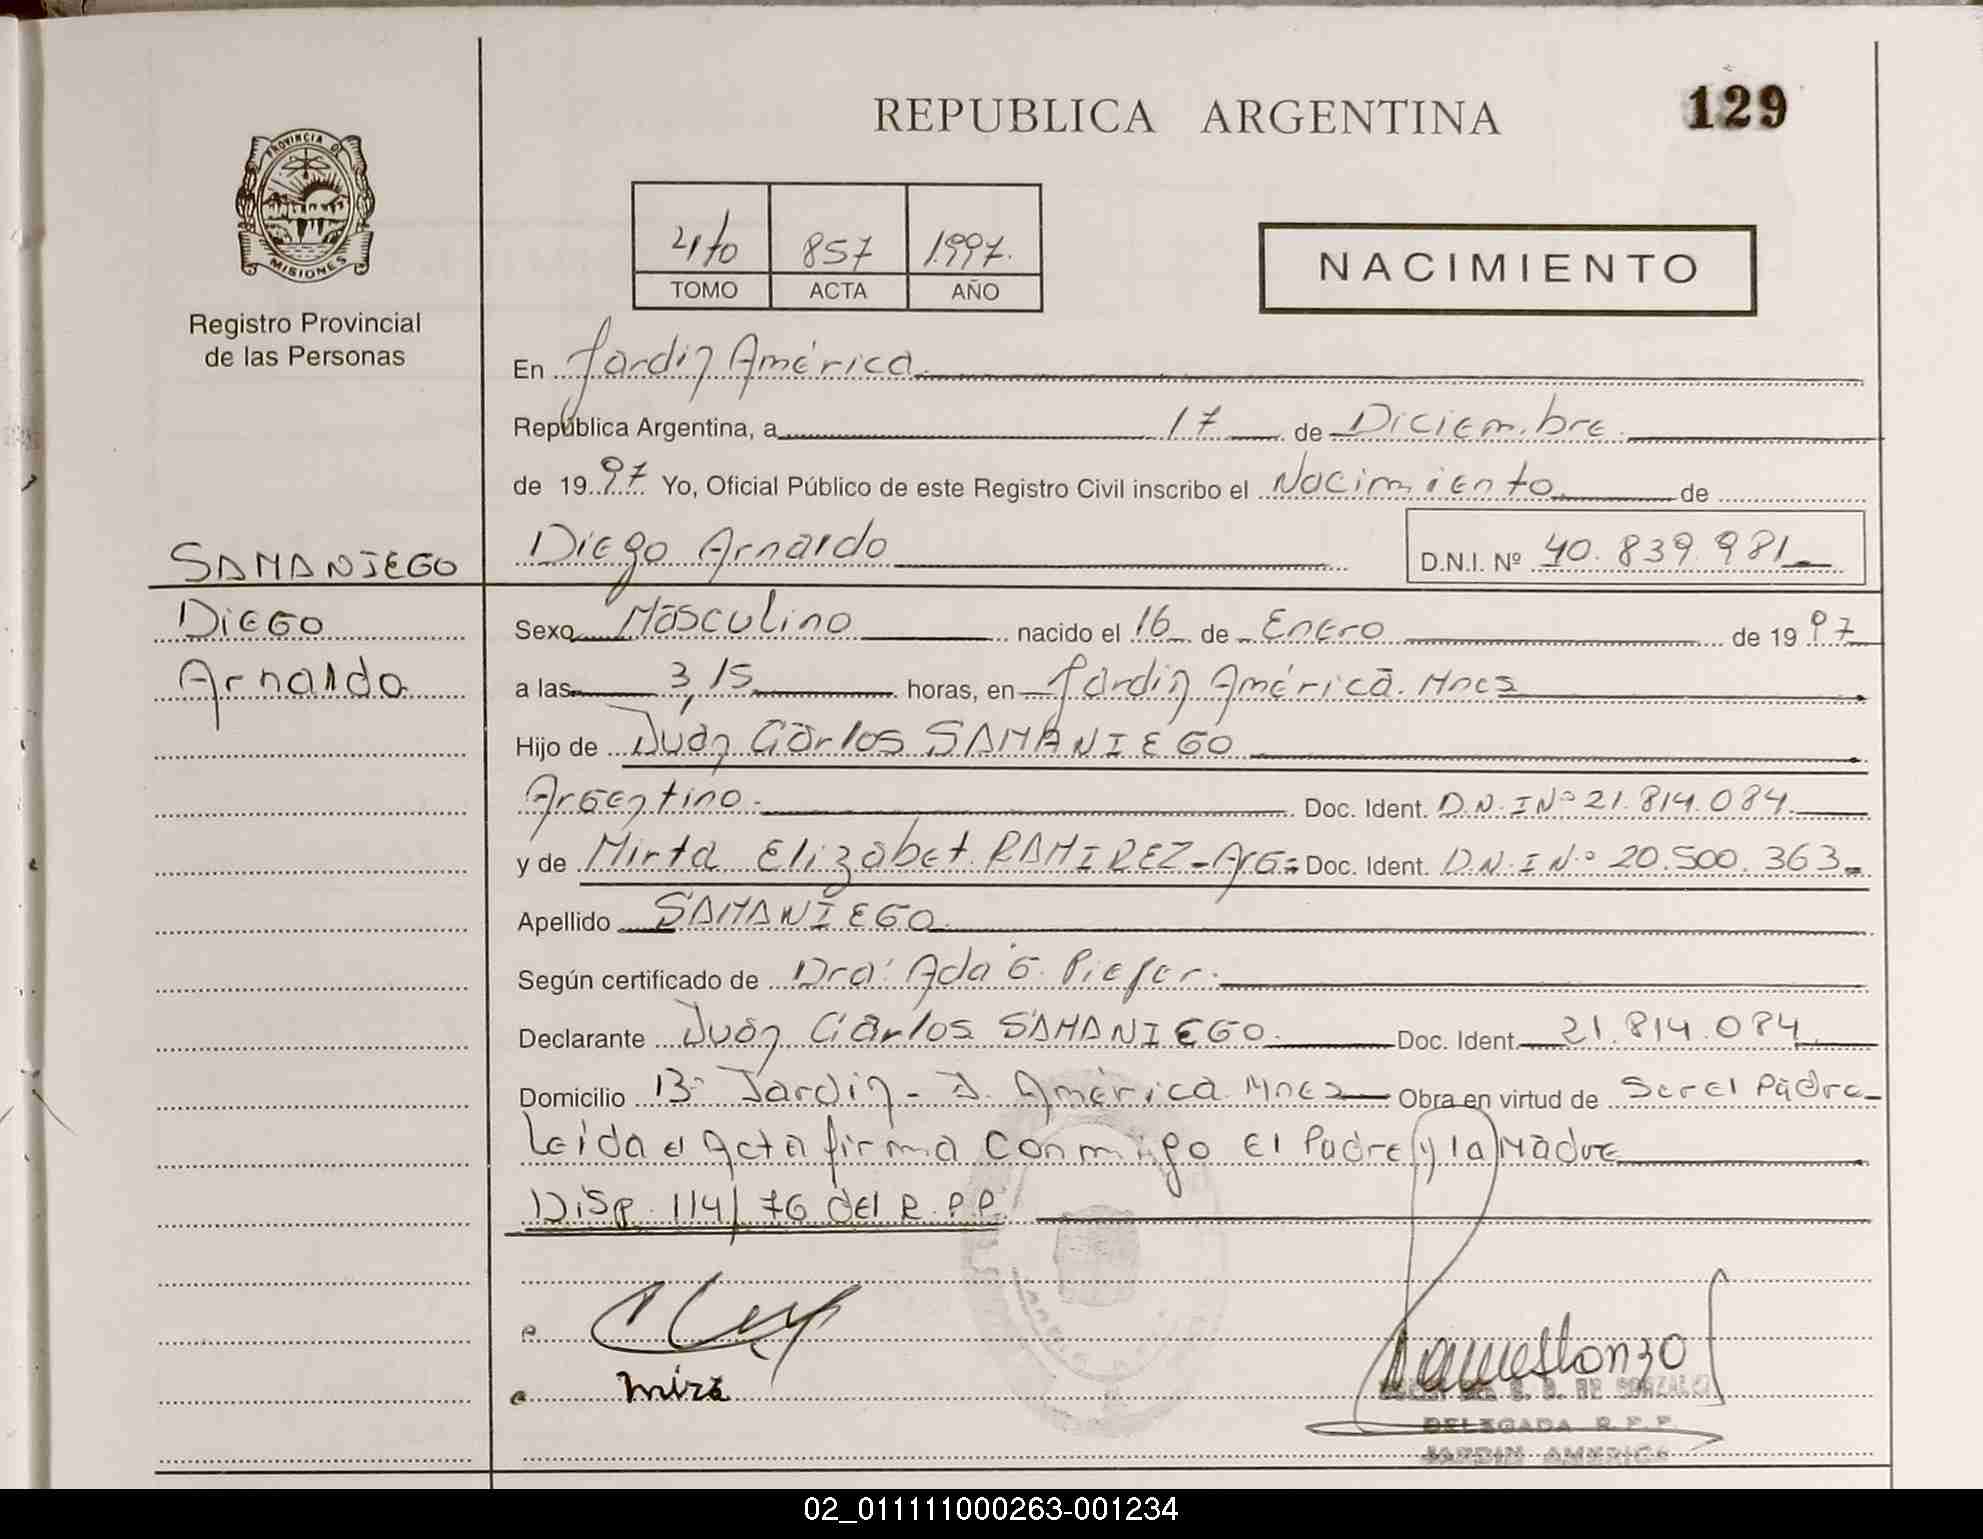 REPUBLICA ARGENTINA
129
PROVINCIA DE
MISIONES
Registro Provincial
de las Personas
4to 857 1.997.
TOMO ACTA AÑO
NACIMIENTO
En Jardin América.
República Argentina, a 17 de Diciembre.
de 19 97 Yo, Oficial Público de este Registro Civil inscribo el Nacimiento de
Diego Arnaldo D.N.I. Nº 40.839.981
SAMANIEGO
DiEGO
Arnaldo
Sexo Masculino nacido el 16 de Enero de 19 97
a las 3,15 horas, en Jardin América. Mnes
Hijo de Juan Carlos SAMANIEGO
Argentino. Doc. Ident. D.N.I Nº 21.814.084.
y de Mirta Elizabet RAMIREZ-Arg= Doc. Ident. D.N.I N.º 20.500.363
Apellido SAMANIEGO
Según certificado de Dra. Ada G.
Declarante Juan Carlos SAMANIEGO. Doc. Ident. 21.814.084
Domicilio Bº Jardin - J. América Mnes Obra en virtud de Ser el Padre
Leida el Acta firma conmigo el Padre y la Madre
Disp. 114/76 del R.P.P.
DELEGADA R.P.P.
JARDIN AMERICA
02_011111000263-001234